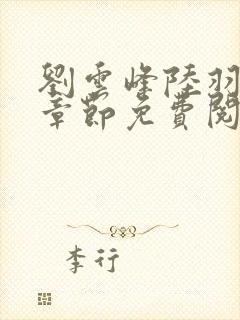 劉雲峰陸羽
章節免費閱
李行